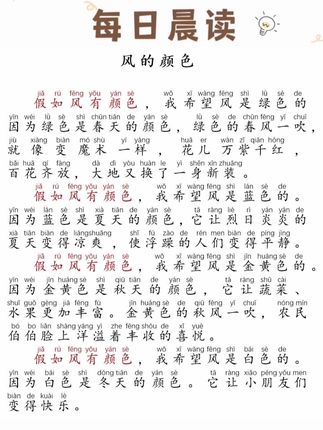 每日晨读
风的颜色
jiǎ rú fēng yǒu yán sè wǒ xī wàng fēng shì lǜ sè de
假如风有颜色，我希望风是绿色的
yīn wéi lǜ sè shì chūn tiān de yán sè lǜ sè de chūn fēng yī chuī
因为绿色是春天的颜色，绿色的春风一吹，
jiù xiàng biàn mó shù yī yàng huā ér wàn zǐ qiān hóng
就像变魔术一样，花儿万紫千红，
bǎi huā qí fàng dà dì yòu huàn le yī shēn xīn zhuāng
百花齐放，大地又换了一身新装。
jiǎ rú fēng yǒu yán sè wǒ xī wàng fēng shì lán sè de
假如风有颜色，我希望风是蓝色的。
yīn wéi lán sè shì xià tiān de yán sè tā ràng liè rì yán yán de
因为蓝色是夏天的颜色，它让烈日炎炎的
xià tiān biàn de liáng shuǎng shǐ fú zào de rén men biàn de píng jìng
夏天变得凉爽，使浮躁的人们变得平静。
jiǎ rú fēng yǒu yán sè wǒ xī wàng fēng shì jīn huáng sè de
假如风有颜色，我希望风是金黄色的。
yīn wéi jīn huáng sè shì qiū tiān de yán sè tā ràng shū cài
因为金黄色是秋天的颜色，它让蔬菜、
shuǐ guǒ gèng jiā fēng fù jīn huáng sè de qiū fēng yī chuī nóng mín
水果更加丰富。金黄色的秋风一吹，农民
bó bo liǎn shàng yáng yì zhe fēng shōu de xǐ yuè
伯伯脸上洋溢着丰收的喜悦。
jiǎ rú fēng yǒu yán sè wǒ xī wàng fēng shì bái sè de
假如风有颜色，我希望风是白色的。
yīn wéi bái sè shì dōng tiān de yán sè tā ràng xiǎo péng yǒu men
因为白色是冬天的颜色。它让小朋友们
biàn de kuài lè
变得快乐。